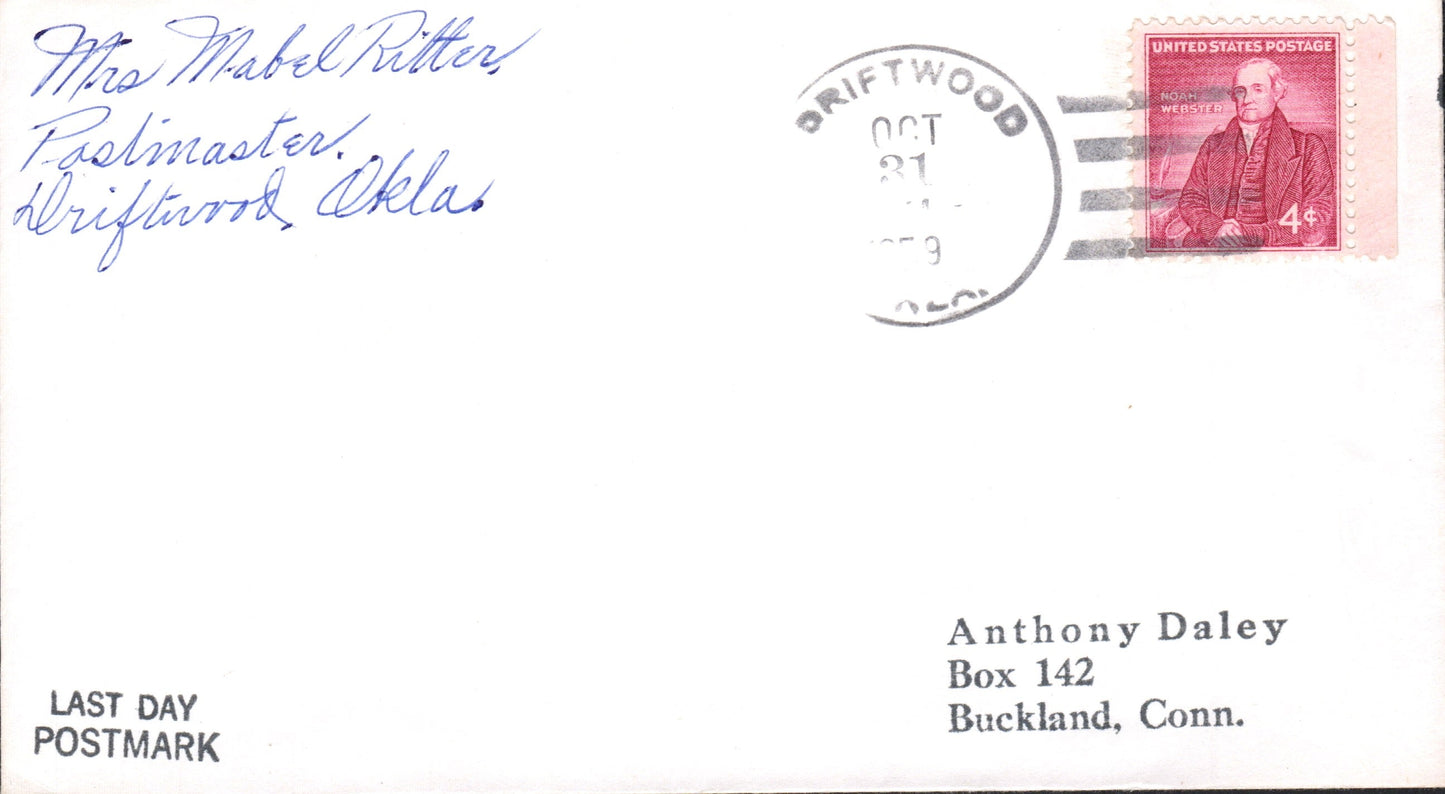 Mrs Mabel Ritter,
Postmaster.
Driftwood, Okla.
DRIFTWOOD
OCT
31
UNITED STATES POSTAGE
NOAH
WEBSTER
4¢
Anthony Daley
Box 142
Buckland, Conn.
LAST DAY
POSTMARK